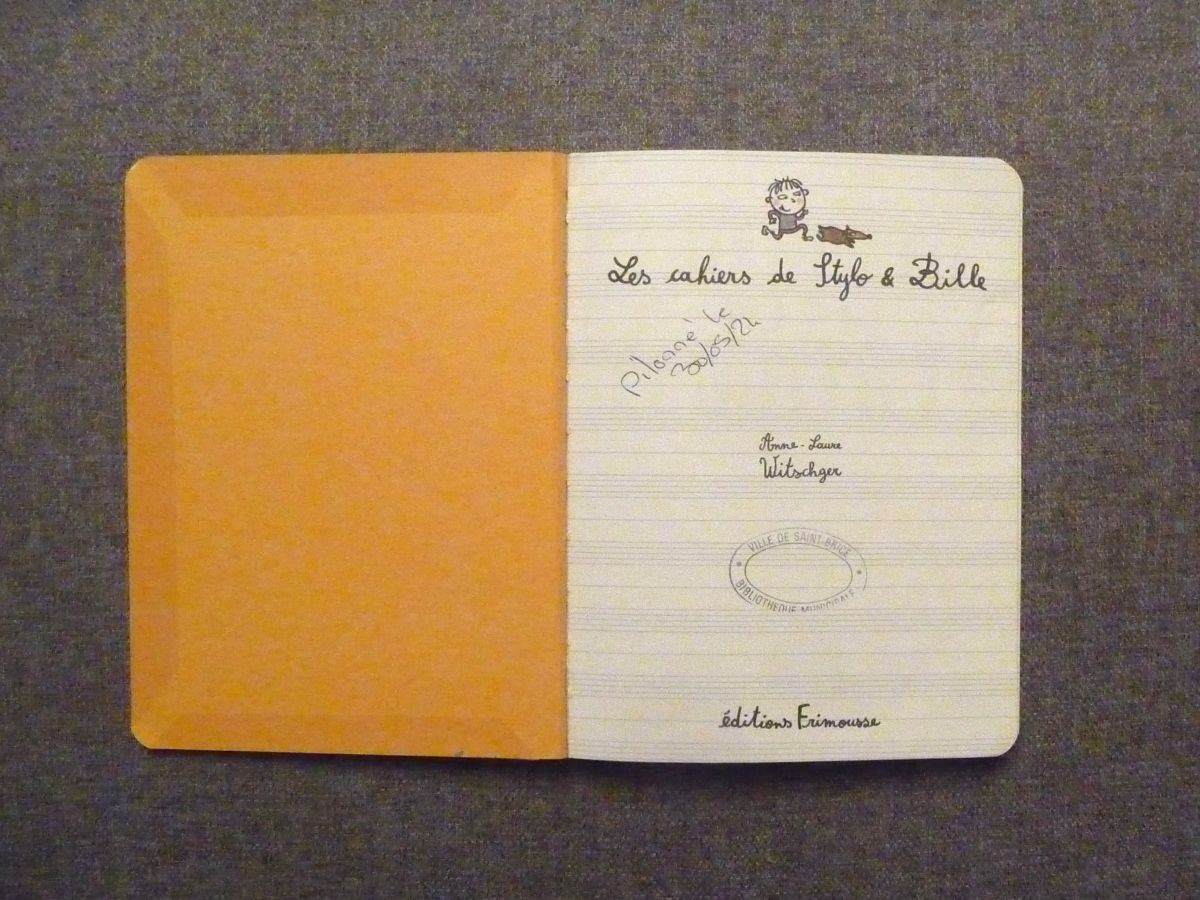 Les cahiers de Stylo & Bille
Pilonné le
30/05/24
Anne-Laure
Witschger
VILLE DE SAINT-BRICE
BIBLIOTHEQUE MUNICIPALE
éditions Frimousse